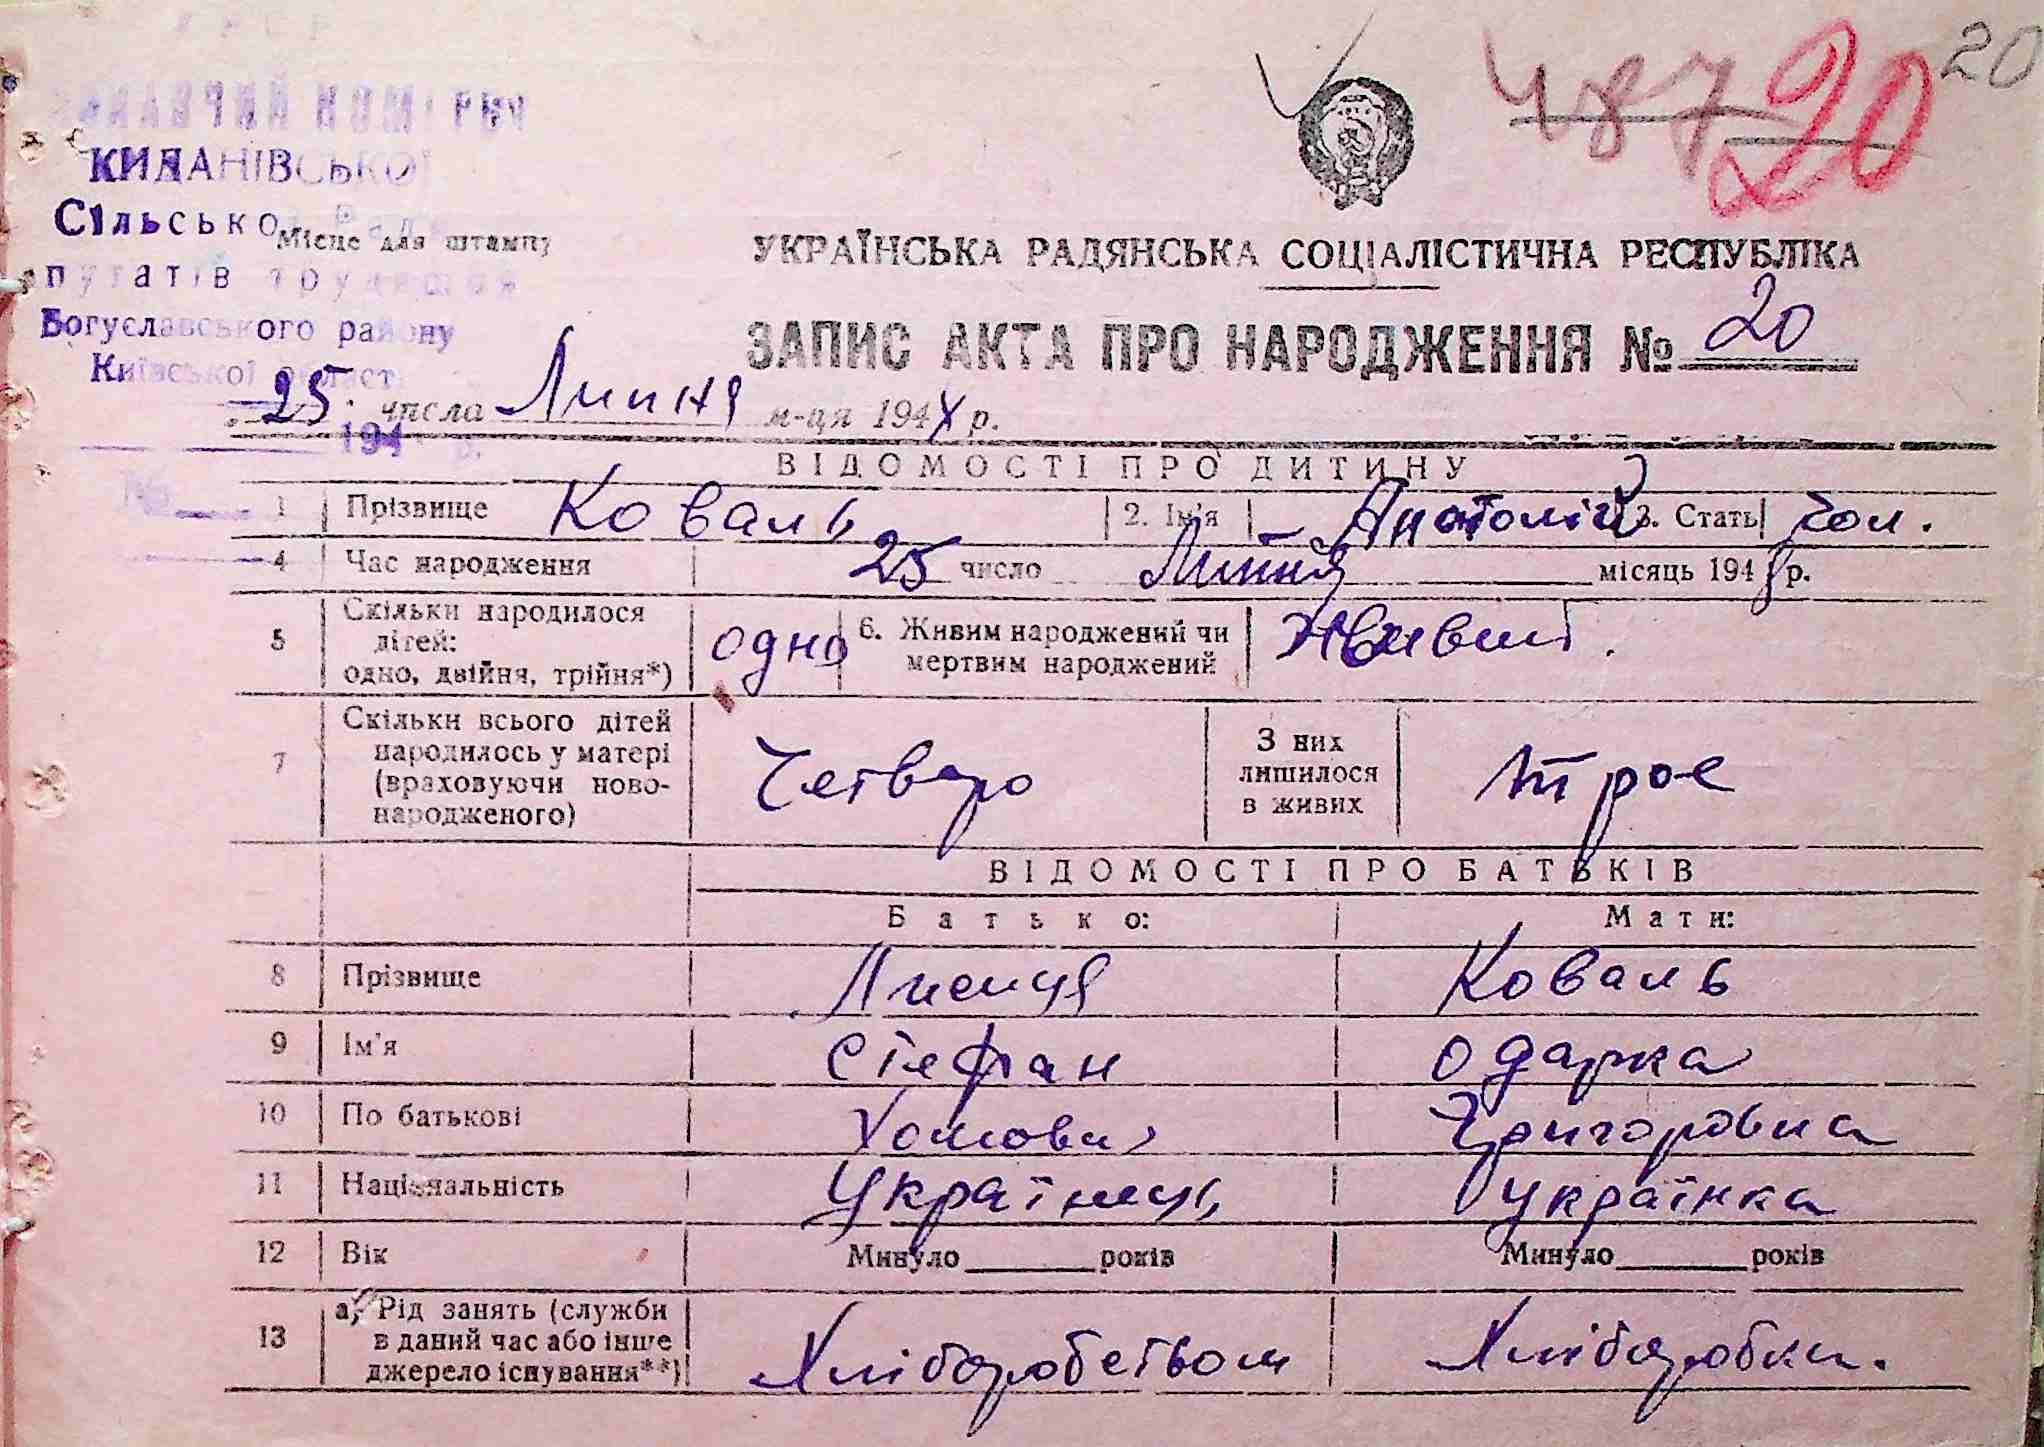 487 20 20
КИДАНІВСЬКОЇ
Сільської Ради
Місце для штампу
путатів трудящих
Богуславського району
Київської област
194 р.
№
УКРАЇНСЬКА РАДЯНСЬКА СОЦІАЛІСТИЧНА РЕСПУБЛІКА
ЗАПИС АКТА ПРО НАРОДЖЕННЯ № 20
25 числа Липня м-ця 194 р.
ВІДОМОСТІ ПРО ДИТИНУ
1 Прізвище Коваль 2. Ім'я Анатолій 3. Стать Чол.
4 Час народження 25 число Липня місяць 1948 р.
5 Скільки народилося
дітей:
одно, двійня, трійня*) одно 6. Живим народжений чи
мертвим народжений Живий.
7 Скільки всього дітей
народилось у матері
(враховуючи ново-
народженого) Четверо З них
лишилося
в живих троє
ВІДОМОСТІ ПРО БАТЬКІВ
Батько: Мати:
8 Прізвище Лисиця Коваль
9 Ім'я Стефан Одарка
10 По батькові Хомович Григоровна
11 Національність Українець українка
12 Вік Минуло років Минуло років
13 а) Рід занять (служби
в даний час або інше
джерело існування**) Хліборобством Хліборобка.